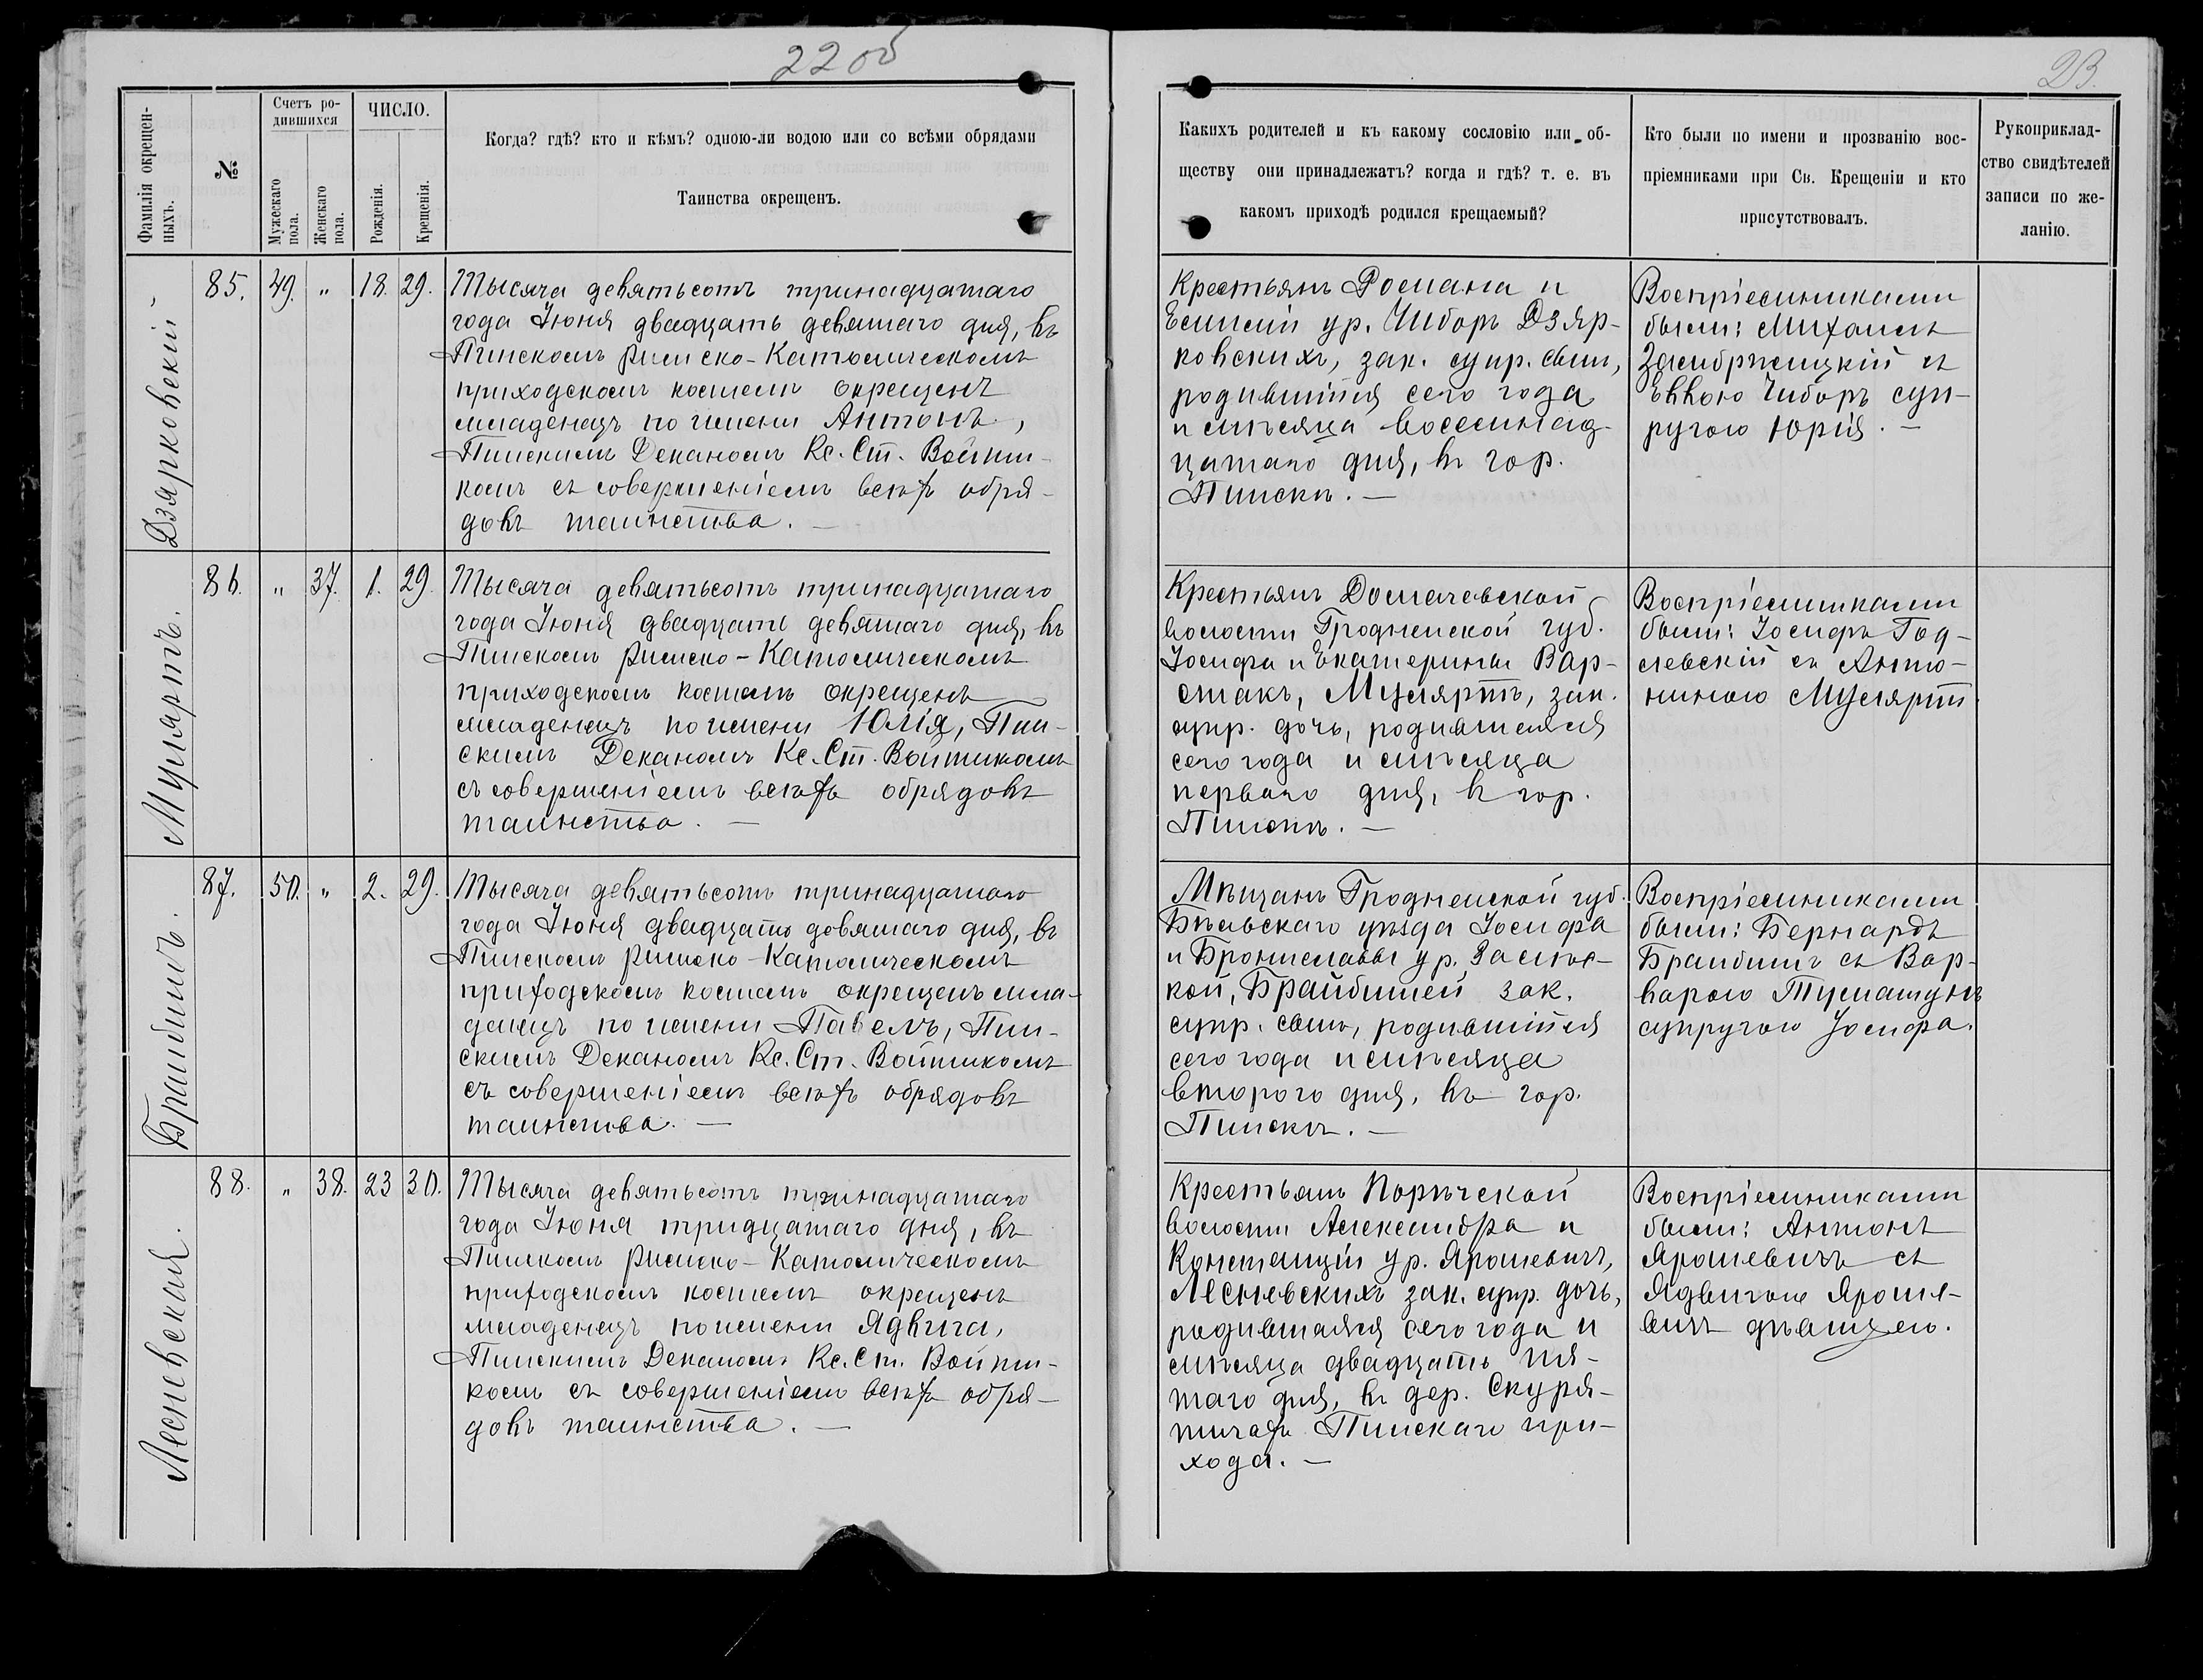 22 об
23.
Фамилія окрещен-
ныхъ.
№
Счетъ ро-
дившихся
Мужескаго
пола.
Женскаго
пола.
ЧИСЛО.
Рожденія.
Крещенія.
Когда? гдѣ? кто и кѣмъ? одною-ли водою или со всѣми обрядами
Таинства окрещенъ.
Какихъ родителей и къ какому сословію или об-
ществу они принадлежатъ? когда и гдѣ? т. е. въ
какомъ приходѣ родился крещаемый?
Кто были по имени и прозванію вос-
пріемниками при Св. Крещеніи и кто
присутствовалъ.
Рукоприклад-
ство свидѣтелей
записи по же-
ланію.
Дзярковскій
85. 49. " 18. 29.
Тысяча девятьсотъ тринадцатаго
года Іюня двадцать девятаго дня, въ
Пинскомъ Римско-Католическомъ
приходскомъ костелѣ окрещенъ
младенецъ по имени Антонъ,
Пинскимъ Деканомъ Кс. Ст. Войти-
комъ съ совершеніемъ всѣхъ обря-
довъ таинства. —
Крестьянъ Романа и
Емиліи ур. Чиборъ Дзяр-
ковскихъ, зак. супр. сынъ,
родившійся сего года
и мѣсяца восемнад-
цатаго дня, въ гор.
Пинскѣ. —
Воспріемниками
были: Михаилъ
Замбржицкій съ
Еввою Чиборъ суп-
ругою Юрія. —
Муляртъ.
86. " 37. 1. 29
Тысяча девятьсотъ тринадцатаго
года Іюня двадцать девятаго дня, въ
Пинскомъ Римско-Католическомъ
приходскомъ костелѣ окрещенъ
младенецъ по имени Юлія, Пин-
скимъ Деканомъ Кс. Ст. Войтикомъ
съ совершеніемъ всѣхъ обрядовъ
таинства. —
Крестьянъ Домачевской
волости Гродненской губ.
Іосифа и Екатерины Вар-
штакъ, Муляртъ, зак.
супр. дочь, родившаяся
сего года и мѣсяца
перваго дня, въ гор.
Пинскѣ. —
Воспріемниками
были: Іосифъ Год-
левскій съ Анто-
ниною Муляртъ
Браибишъ.
87. 50. " 2. 29.
Тысяча девятьсотъ тринадцатаго
года Іюня двадцать девятаго дня, въ
Пинскомъ Римско-Католическомъ
приходскомъ костелѣ окрещенъ мла-
денецъ по имени Павелъ, Пин-
скимъ Деканомъ Кс. Ст. Войтикомъ
съ совершеніемъ всѣхъ обрядовъ
таинства. —
Мѣщанъ Гродненской губ.
Бѣльскаго уѣзда Іосифа
и Брониславы ур.
кой, Брайбишей зак.
супр. сынъ, родившійся
сего года и мѣсяца
второго дня, въ гор.
Пинскѣ. —
Воспріемниками
были: Бернардъ
Браибишъ съ Вар-
варою
супругою Іосифа.
Лесневская.
88. " 38. 23 30.
Тысяча девятьсотъ тринадцатаго
года Іюня тридцатаго дня, въ
Пинскомъ Римско-Католическомъ
приходскомъ костелѣ окрещенъ
младенецъ по имени Ядвига,
Пинскимъ Деканомъ Кс. Ст. Войти-
комъ съ совершеніемъ всѣхъ обря-
довъ таинства. —
Крестьянъ Порѣчской
волости Александра и
Констанціи ур. Ярошевичъ,
Лесневскихъ зак. супр. дочь,
родившаяся сего года и
мѣсяца двадцать пя-
таго дня, въ дер. Скуря-
тичахъ Пинскаго при-
хода. —
Воспріемниками
были: Антонъ
Ярошевичъ съ
Ядвигою Яроше-
вичъ дѣвицею.